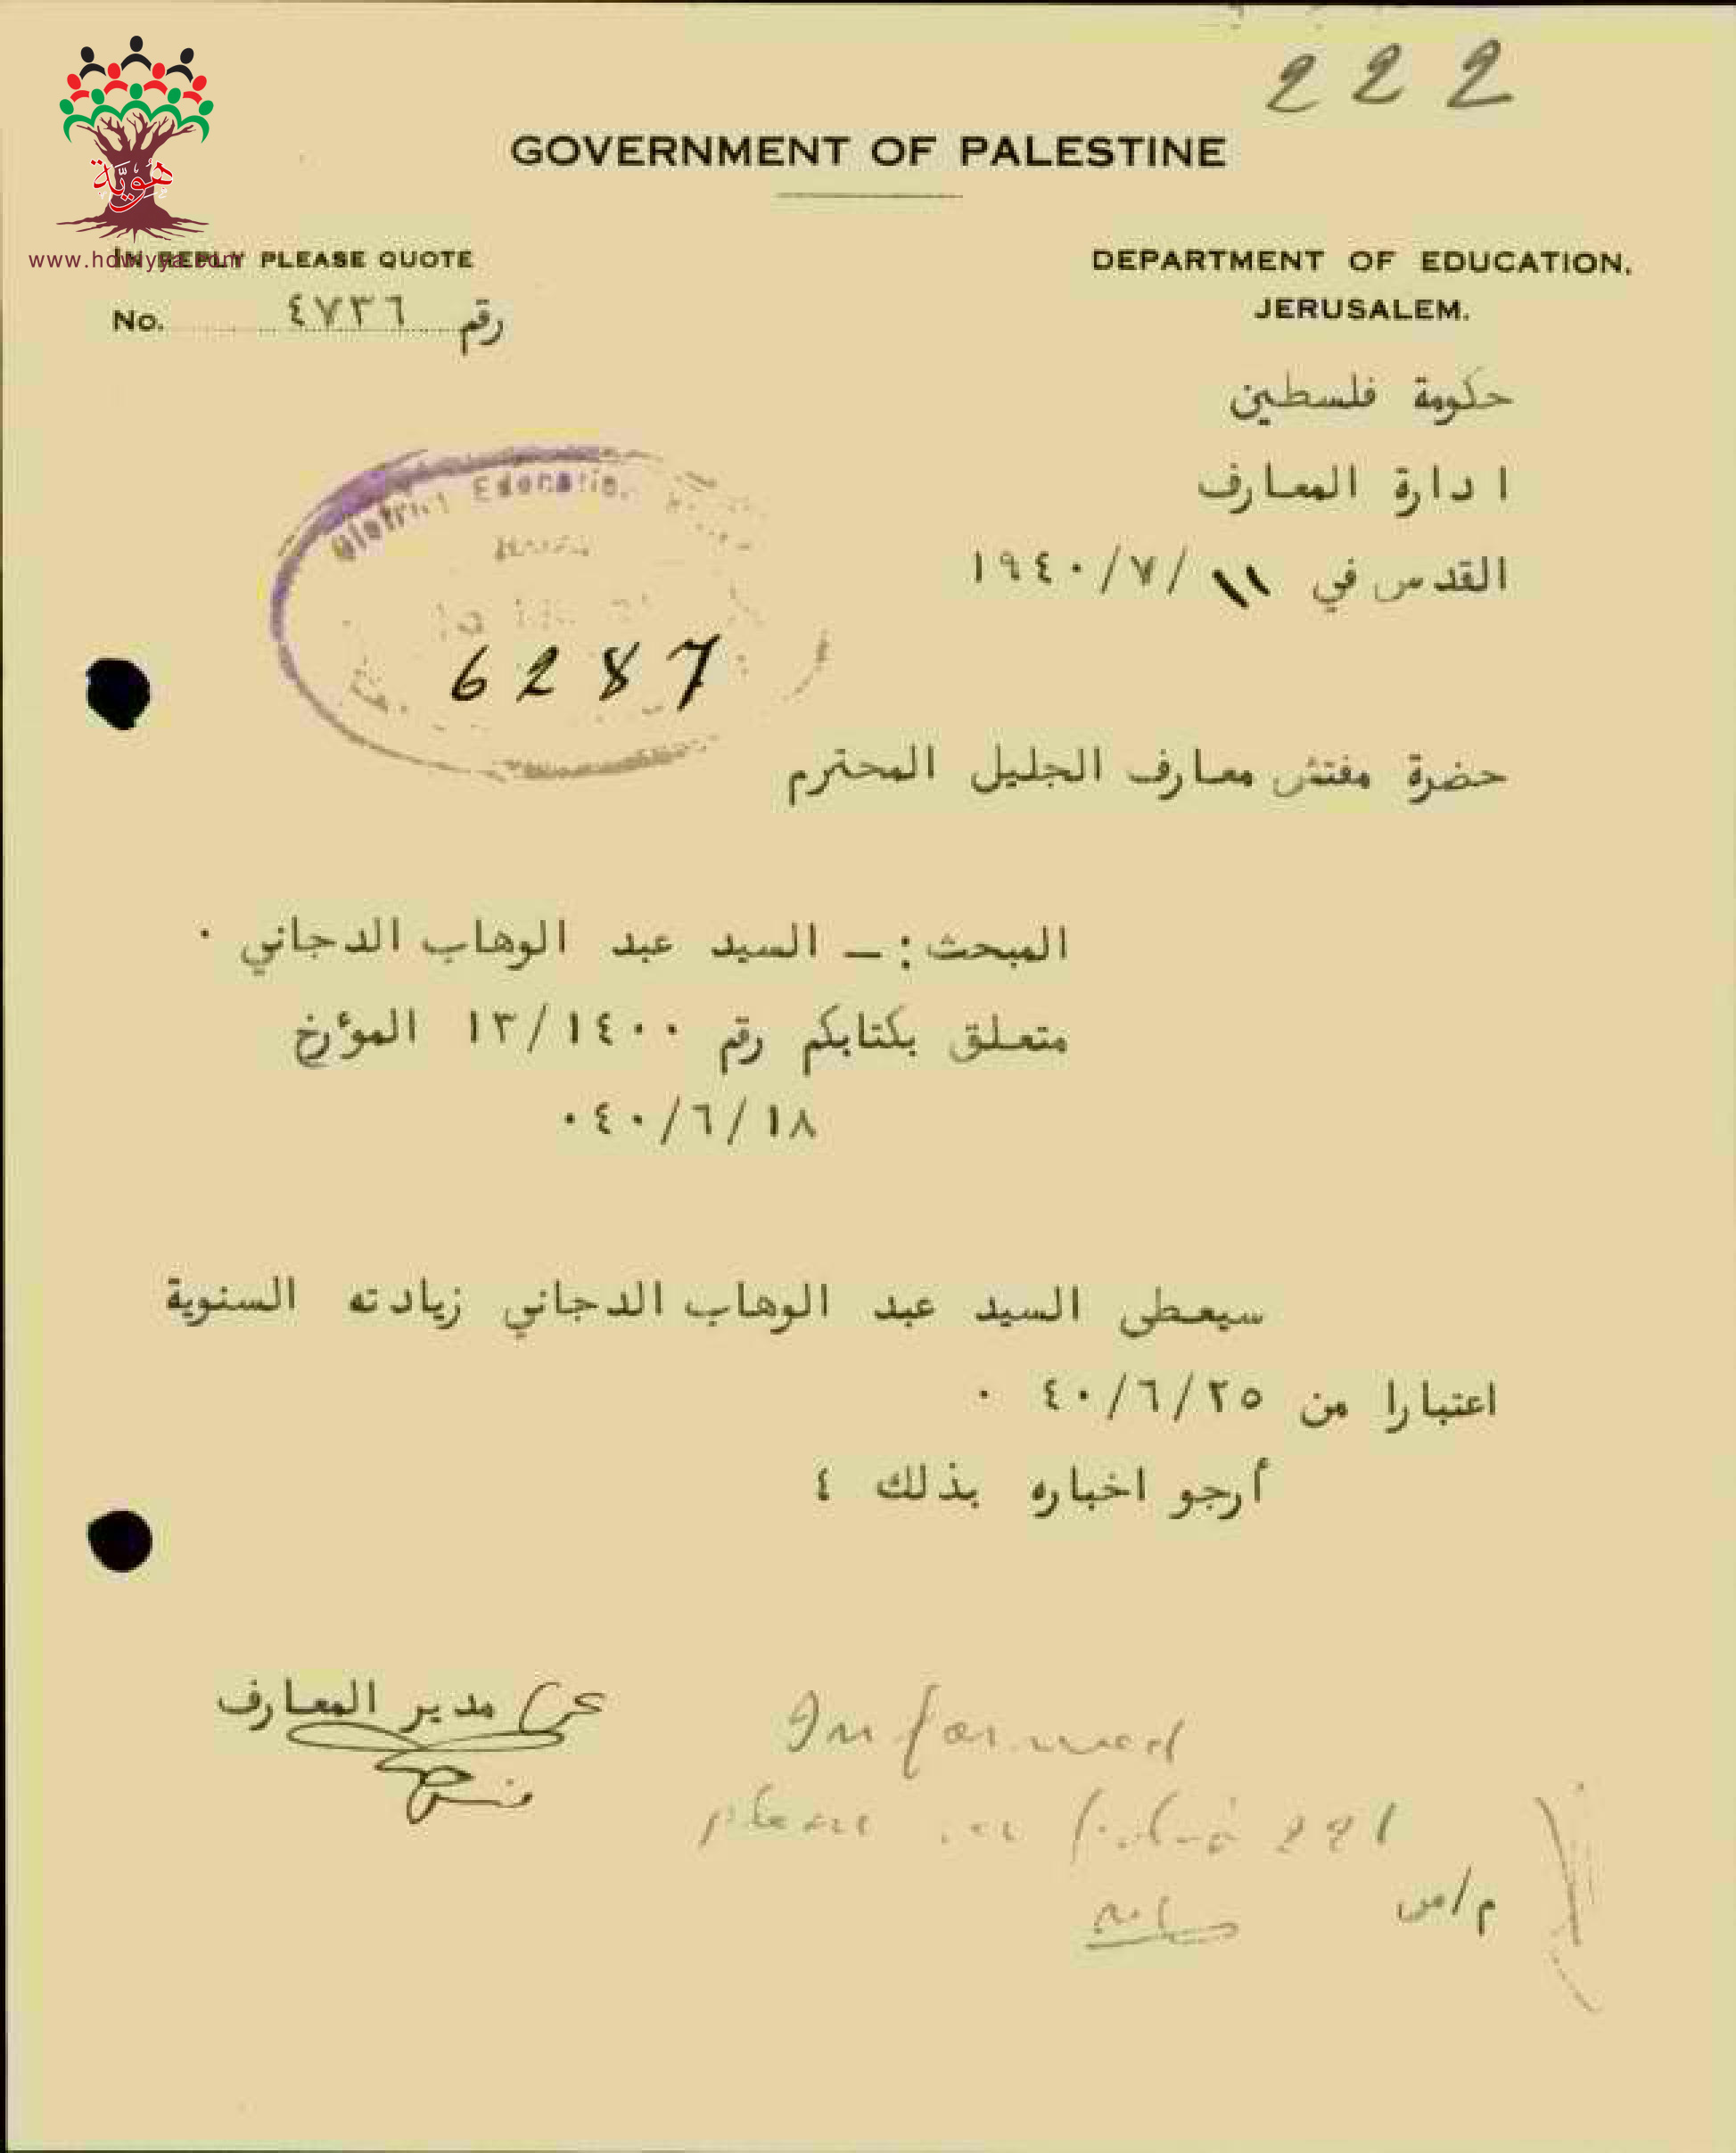 222
GOVERNMENT OF PALESTINE
هوية
www.howiyya.com
IN REPLY PLEASE QUOTE
No. ٤٧٣٦ رقم
DEPARTMENT OF EDUCATION.
JERUSALEM.
حكومة فلسطين
ادارة المعارف
القدس في ١١/٧/١٩٤٠
District Education
6287
حضرة مفتش معارف الجليل المحترم
المبحث :ـ السيد عبد الوهاب الدجاني ٠
متعلق بكتابكم رقم ١٣/١٤٠٠ المؤرخ
١٨/٦/٠٤٠
سيعطى السيد عبد الوهاب الدجاني زيادته السنوية
اعتبارا من ٢٥/٦/٤٠ ٠
أرجو اخباره بذلك ٤
عن مدير المعارف
Informed
please see 221
م/س